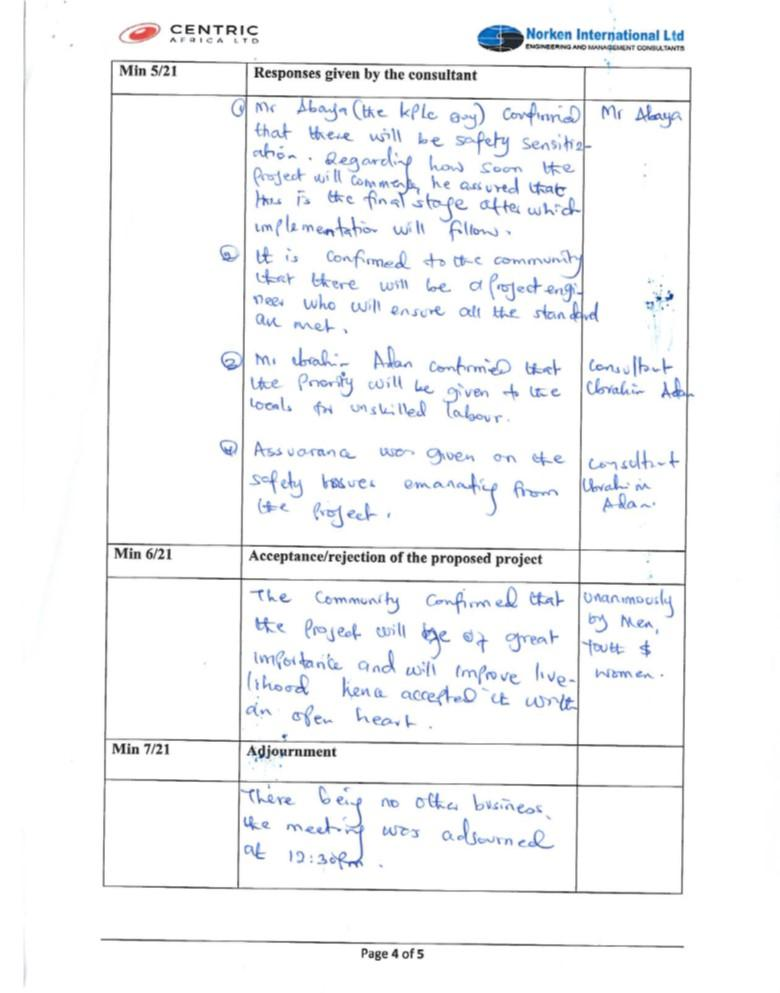 CENTRIC
AFRICA LTD
Norken International Ltd
ENGINEERING AND MANAGEMENT CONSULTANTS
Min 5/21
Responses given by the consultant
① Mr Abaya (the KPLC guy) confirmed
that there will be safety sensitiz-
ation. Regarding how soon the
project will commence, he assured that
this is the final stage after which
implementation will follow.
Mr Abaya
② It is confirmed to the community
that there will be a project engi-
neer who will ensure all the standard
are met.
③ Mr Ibrahim Adan confirmed that
the priority will be given to the
locals for unskilled labour.
Consultant
Ibrahim Adan
④ Assuarance was given on the
safety issues emanating from
the project.
Consultant
Ibrahim
Adan.
Min 6/21
Acceptance/rejection of the proposed project
The Community confirmed that
the project will be of great
importance and will improve live-
lihood hence accepted it with
an open heart.
Unanimously
by Men,
Youth &
women.
Min 7/21
Adjournment
There being no other business,
the meeting was adjourned
at 12:30pm.
Page 4 of 5